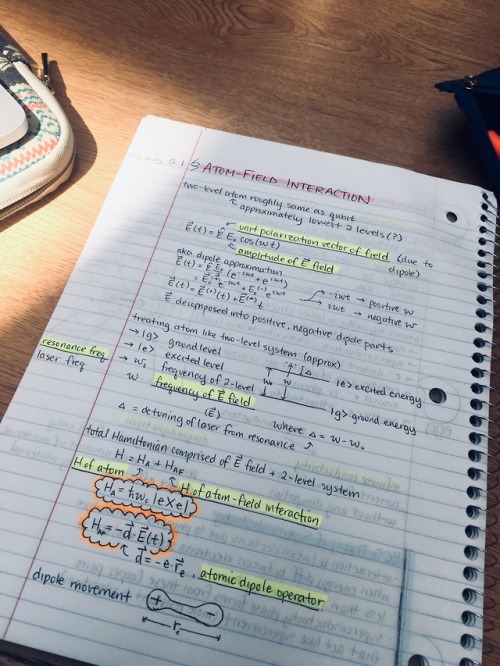 § ATOM-FIELD INTERACTION
two-level atom roughly same as qubit
↖ approximately lowest 2 levels (?)
↙ unit polarization vector of field (due to dipole)
E⃗(t) = ε̂ E₀ cos(wt)
↖ amplitude of E⃗ field
aka dipole approximation
E⃗(t) = ε̂ E₀ (e^-iwt + e^iwt)
E⃗(t) = E⃗⁽⁺⁾(t) + E⃗⁽⁻⁾(t)
-iwt → positive w
iwt → negative w
E⃗ decomposed into positive, negative dipole parts
treating atom like two-level system (approx)
→ |g> ground level
→ |e> excited level
resonance freq → w₀ frequency of 2-level
laser freq w frequency of E⃗ field
Δ
w₀ w
|e> excited energy
|g> ground energy
(E⃗)
Δ = detuning of laser from resonance where Δ = w - w₀
total Hamiltonian comprised of E⃗ field + 2-level system
H = H_A + H_AF
H of atom H of atom-field interaction
H_A = ħw₀ |e><e|
H_AF = -d⃗ · E⃗(t)
d⃗ = -e · r⃗_e , atomic dipole operator
dipole movement + -
r_e